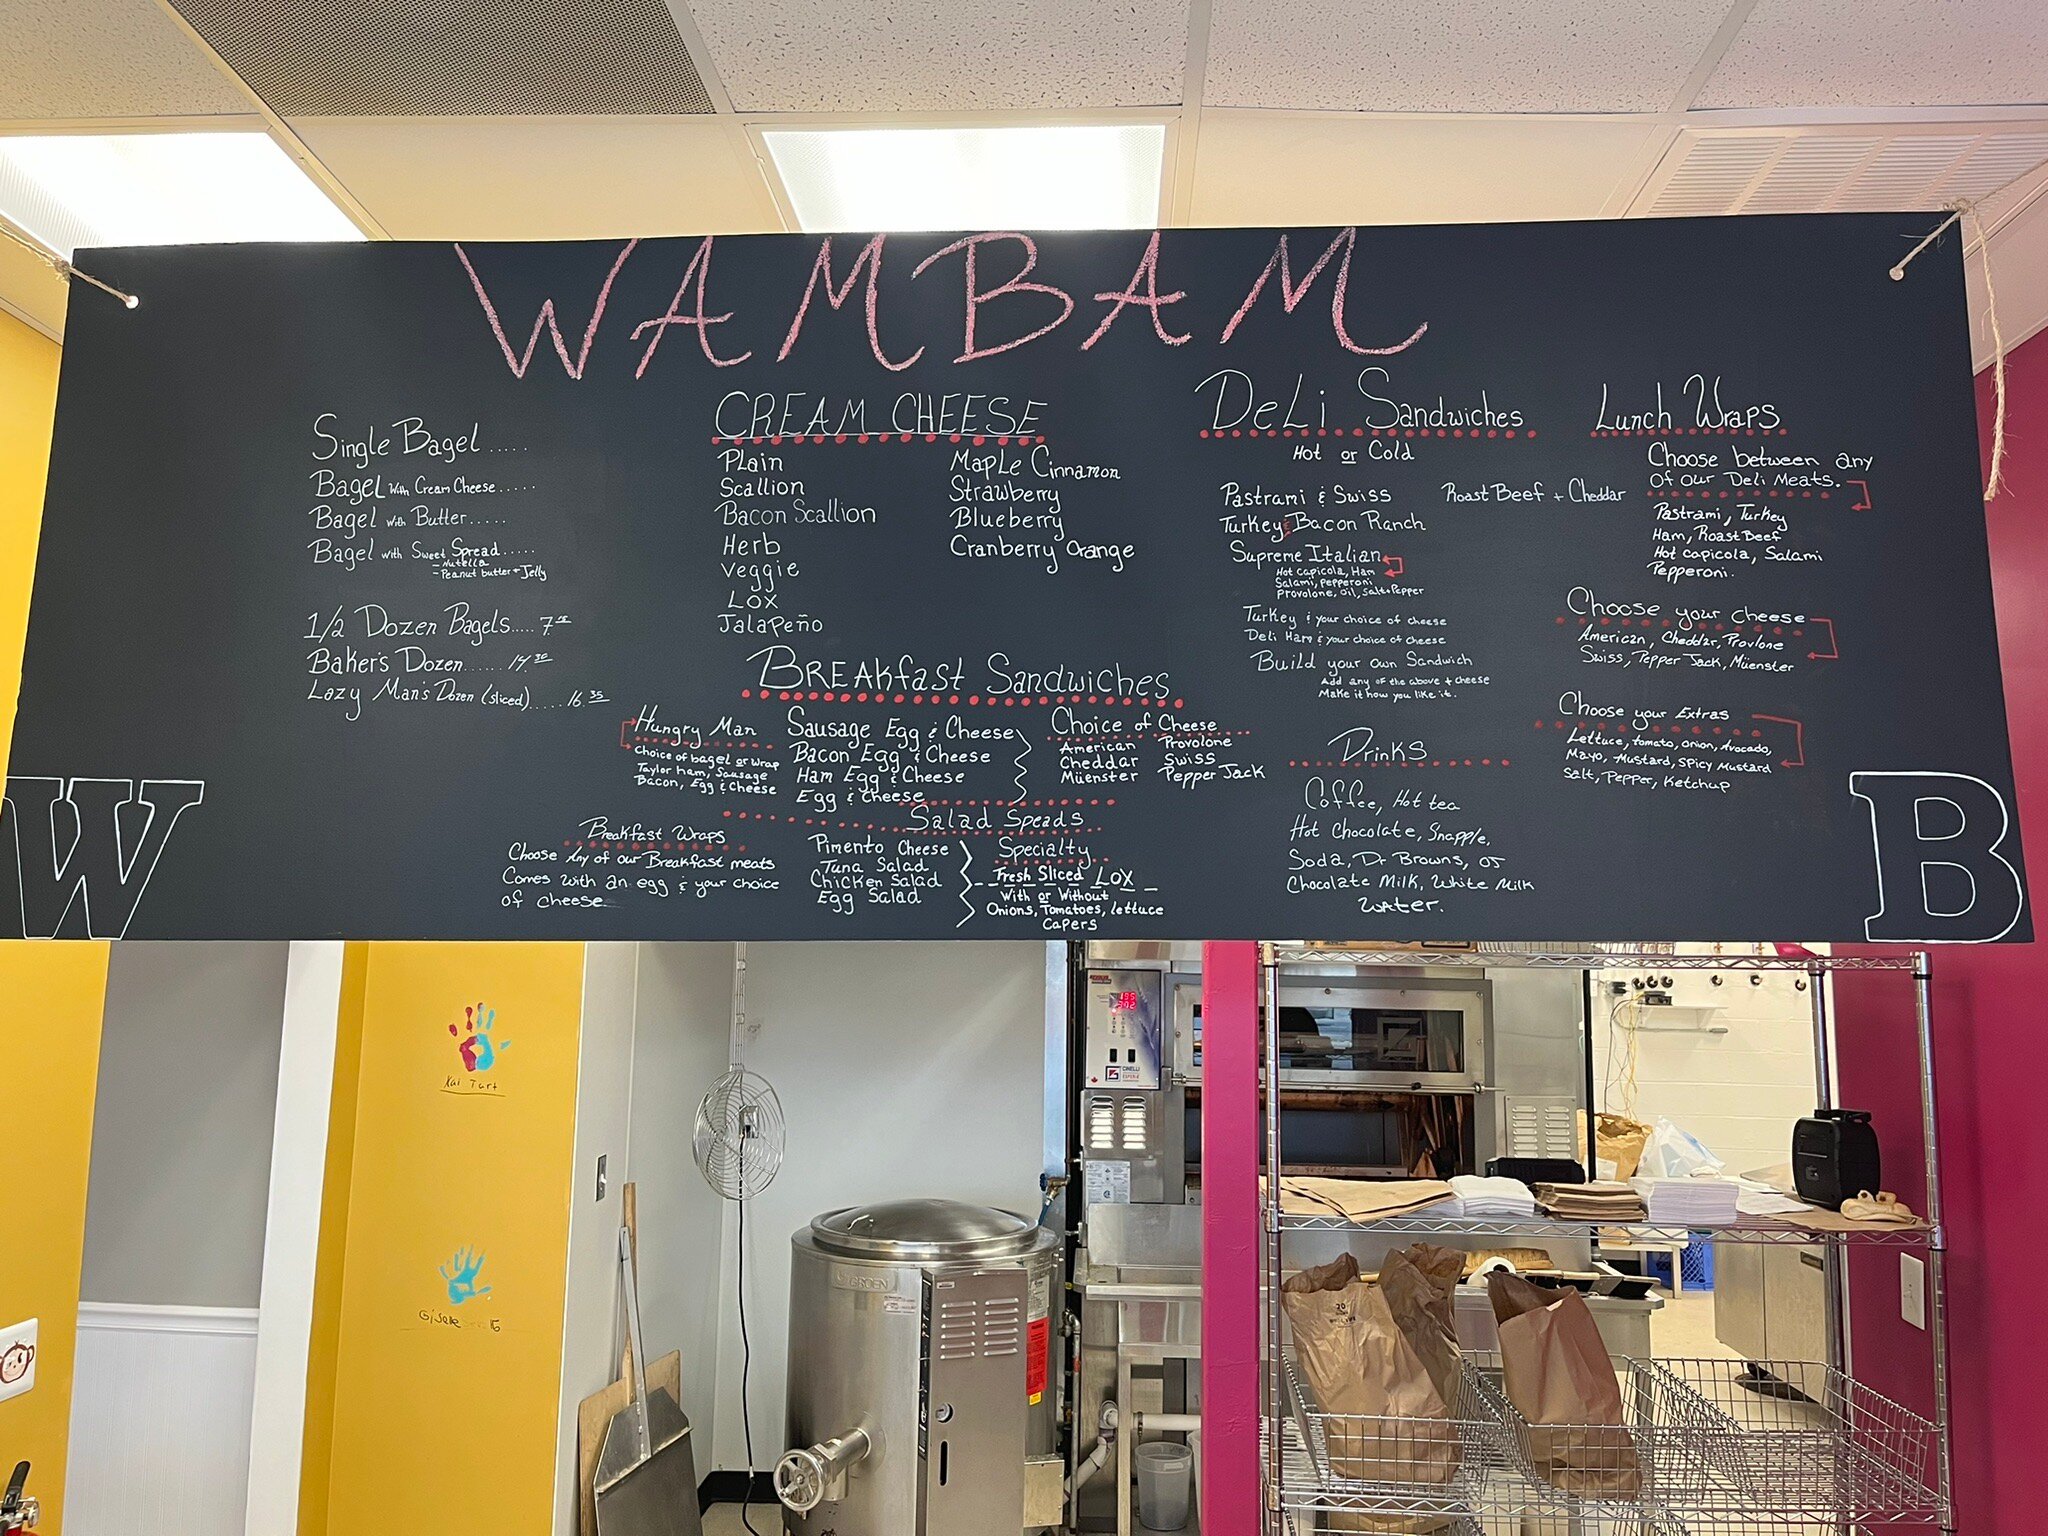 WAMBAM
Single Bagel.....
Bagel With Cream Cheese.....
Bagel with Butter.....
Bagel with Sweet Spread.....
- Nutella
- Peanut butter + Jelly
1/2 Dozen Bagels.....
Baker's Dozen......
Lazy Man's Dozen (sliced)..... 16.35
CREAM CHEESE
Plain
Scallion
Bacon Scallion
Herb
Veggie
Lox
Jalapeño
Maple Cinnamon
Strawberry
Blueberry
Cranberry Orange
BREAKfast Sandwiches
Hungry Man
Choice of bagel or wrap
Taylor ham, Sausage
Bacon, Egg & Cheese
Sausage Egg & Cheese
Bacon Egg & Cheese
Ham Egg & Cheese
Egg & Cheese
Choice of Cheese
American
Cheddar
Müenster
Provolone
Swiss
Pepper Jack
Breakfast Wraps
Choose Any of our Breakfast meats
Comes with an egg & your choice
of cheese
Salad Speads
Pimento Cheese
Tuna Salad
Chicken Salad
Egg Salad
Specialty
Fresh Sliced LOX
With or Without
Onions, Tomatoes, lettuce
Capers
DeLi Sandwiches
Hot or Cold
Pastrami & Swiss
Roast Beef + Cheddar
Turkey & Bacon Ranch
Supreme Italian
Hot capicola, Ham
Salami, pepperoni
Provolone, Oil, Salt + Pepper
Turkey & your choice of cheese
Deli Ham & your choice of cheese
Build your own Sandwich
Add any of the above + cheese
Make it how you like it.
Drinks
Coffee, Hot tea
Hot Chocolate, Snapple,
Soda, Dr Browns, OJ
Chocolate Milk, White Milk
Water.
Lunch Wraps
Choose between any
of our Deli Meats.
Pastrami, Turkey
Ham, Roast Beef
Hot capicola, Salami
Pepperoni.
Choose your cheese
American, Cheddar, Provlone
Swiss, Pepper Jack, Müenster
Choose your Extras
Lettuce, tomato, onion, Avocado,
Mayo, Mustard, Spicy Mustard
Salt, Pepper, Ketchup
W
B
Kai Turt
Gisele
GROEN
CINELLI